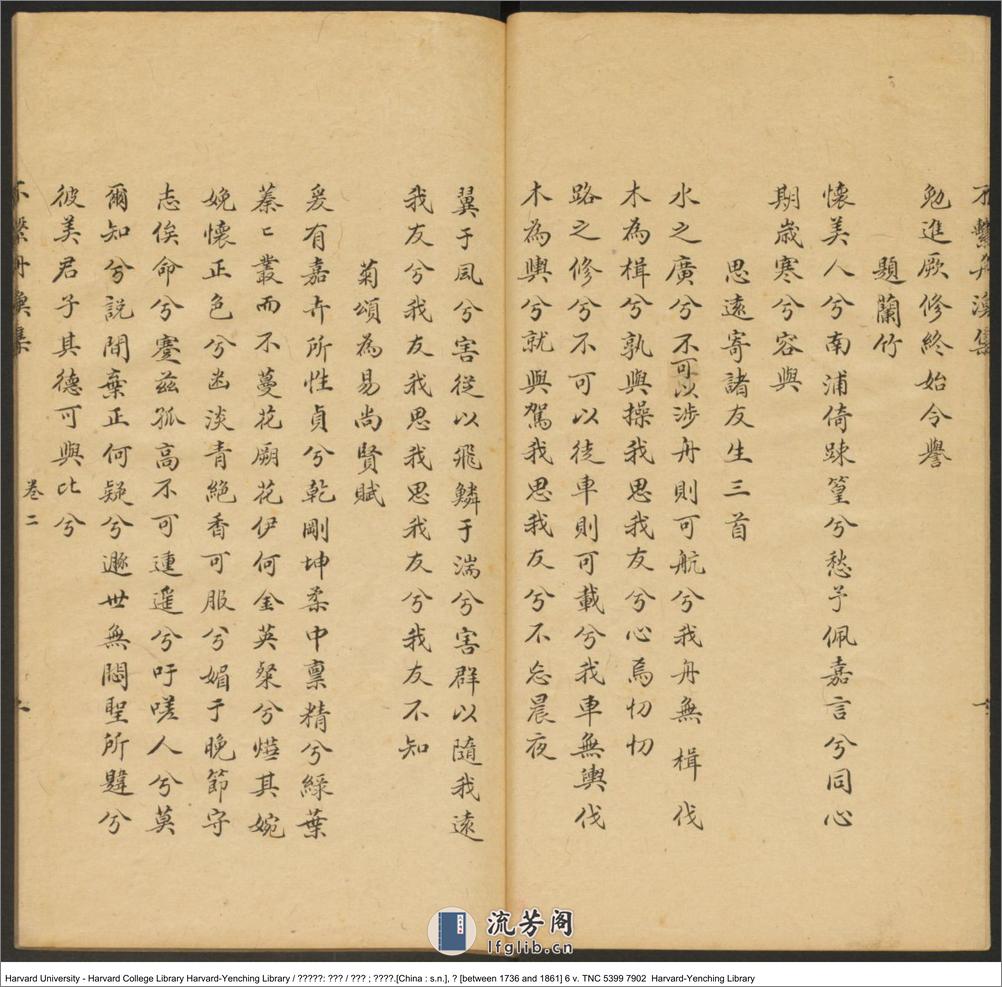 不繫舟漁集
勉進厥修終始令譽
題蘭竹
懷美人兮南浦倚踈篁兮愁予佩嘉言兮同心
期歲寒兮容與
思遠寄諸友生三首
水之廣兮不可以涉舟則可航兮我舟無楫伐
木為楫兮孰與操我思我友兮心焉忉忉
路之修兮不可以徒車則可載兮我車無輿伐
木為輿兮就與駕我思我友兮不忘晨夜
翼于風兮害從以飛鱗于湍兮害群以隨我遠
我友兮我友我思我思我友兮我友不知
菊頌為易尚賢賦
爰有嘉卉所性貞兮乾剛坤柔中稟精兮綠葉
蓁〻叢而不蔓花厠花伊何金英粲兮燁其婉
娩懷正色兮幽淡青絕香可服兮媚于晚節守
志俟命兮蹇茲孤高不可連遥兮吁嗟人兮莫
爾知兮說間棄正何疑兮遯世無悶聖所韙兮
彼美君子其德可與比兮
不繫舟漁集
卷二
流芳阁
lfglib.cn
Harvard University - Harvard College Library Harvard-Yenching Library / ?????: ??? / ??? ; ????.[China : s.n.], ? [between 1736 and 1861] 6 v. TNC 5399 7902 Harvard-Yenching Library